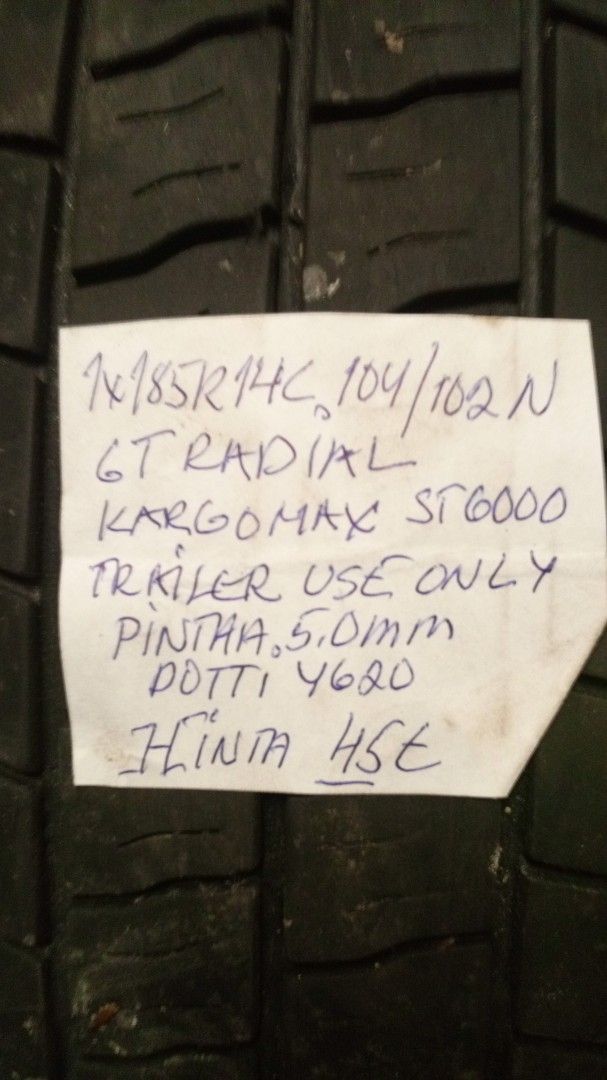 1x185R14C. 104/102N
GT RADIAL
KARGOMAX ST6000
TRAILER USE ONLY
PINTAA. 5.0mm
DOTTI 4620
HINTA 45€